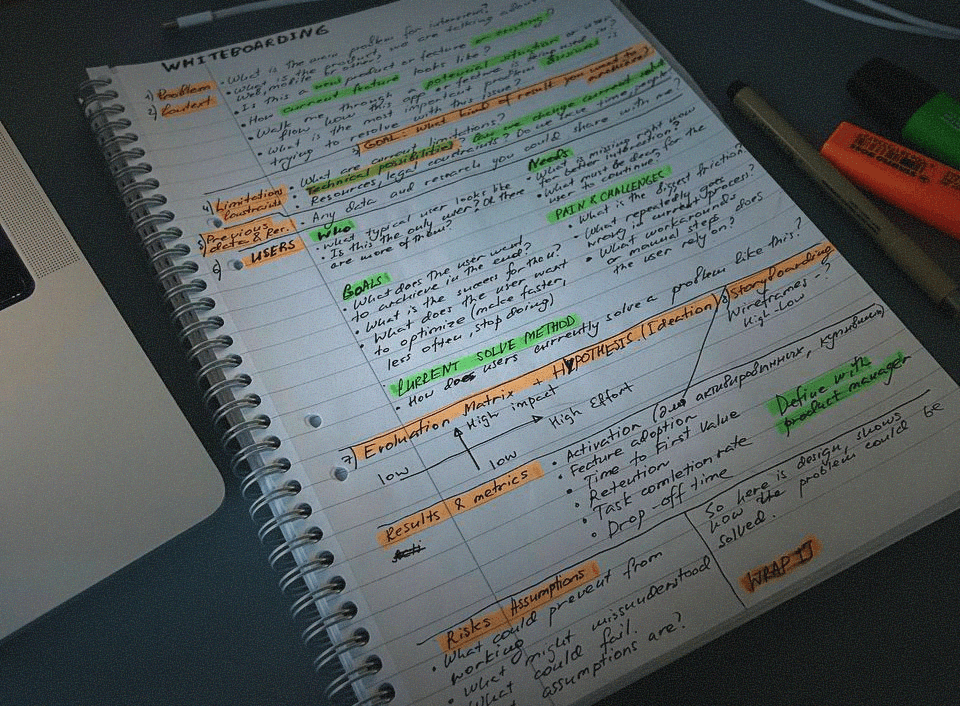 WHITEBOARDING
1) Problem
2) Context
• What is the main problem for interview?
• What is the product, we are talking about?
Web, mobile or other?
• Is this a new product or feature or existing?
• How current feature looks like?
• Walk me through a potential situation or user
flow how this app or feature is being used in?
• What is the most important problem business is
trying to resolve with this issue?
3) GOAL: what kind of result you want to
archieve?
4) Limitations
Constraints
• What are current limitations?
Technical possibilities
Resources, legal constraints? Do we have time
5) Previous?
data & Per.
• Any data and research you could share with me?
6) USERS
WHO
• What typical user looks like
• Is this the only user? Or there
are more of them?
GOALS
• What does the user want
to archieve in the end?
• What is the success for them?
• What does the user want
to optimize (make faster,
less often, stop doing)
Needs
• What is missing right now
for better interaction?
• What must be done for the
user to continue?
PAIN & CHALLENGES
• What is the biggest friction
• What repeatedly goes
wrong in current process?
• What workarounds
or manual steps does
the user rely on?
CURRENT SOLVE METHOD
• How does users currently solve a problem like this?
7) Evoluation Matrix + HYPOTHESIS. (Ideation)
8) Storyboarding
Wireframes - ?
High-Low
High impact
High Effort
low
low
Results & metrics
• Activation (для активированных, купивших)
• Feature adoption
• Time to First Value
• Retention
• Task comletion rate
• Drop-off time
Define with
product manager
Risks Assumptions
• What could prevent from
working
• What might missunderstood
What could fail.
assumptions are?
So here is design, shows
how the problem could be
solved.
WRAP IT